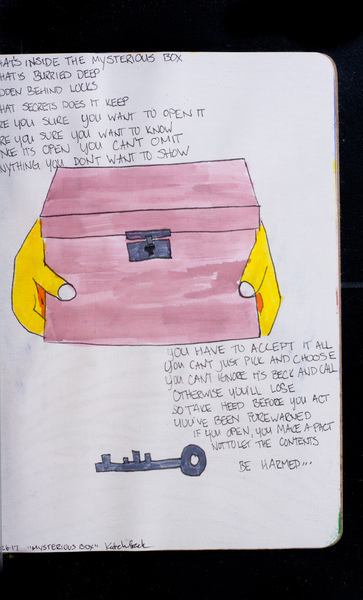 HAT'S INSIDE THE MYSTERIOUS BOX
HAT'S BURRIED DEEP
DDEN BEHIND LOCKS
HAT SECRETS DOES IT KEEP
RE YOU SURE YOU WANT TO OPEN IT
RE YOU SURE YOU WANT TO KNOW
NCE ITS OPEN YOU CAN'T OMIT
NYTHING YOU DON'T WANT TO SHOW
YOU HAVE TO ACCEPT IT ALL
YOU CAN'T JUST PICK AND CHOOSE
YOU CAN'T IGNORE IT'S BECK AND CALL
OTHERWISE YOU'LL LOSE
SO TAKE HEED BEFORE YOU ACT
YOU'VE BEEN FOREWARNED
IF YOU OPEN, YOU MAKE A PACT
NOT TO LET THE CONTENTS
BE HARMED...
"MYSTERIOUS BOX"